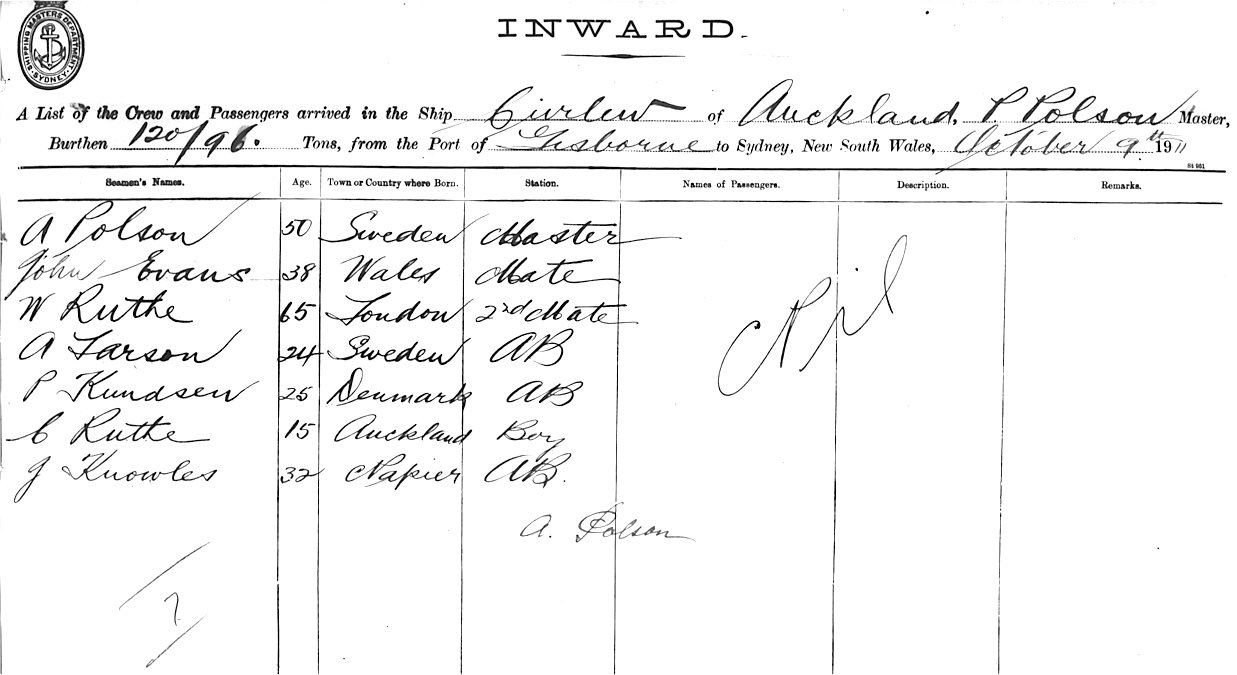 SHIPPING MASTERS DEPARTMENT SYDNEY
INWARD.
A List of the Crew and Passengers arrived in the Ship of Auckland, P. Polson Master,
Burthen 120/96. Tons, from the Port of Gisborne to Sydney, New South Wales, October 9th 1911
St 961
Seamen's Names. Age. Town or Country where Born. Station. Names of Passengers. Description. Remarks.
A Polson 50 Sweden Master
John Evans 38 Wales Mate
W Ruthe 65 London 2nd Mate
A Larson 24 Sweden AB
P Kundsen 25 Denmark AB
C Ruthe 15 Auckland Boy
J Knowles 32 Napier AB.
Nil
A. Polson
7